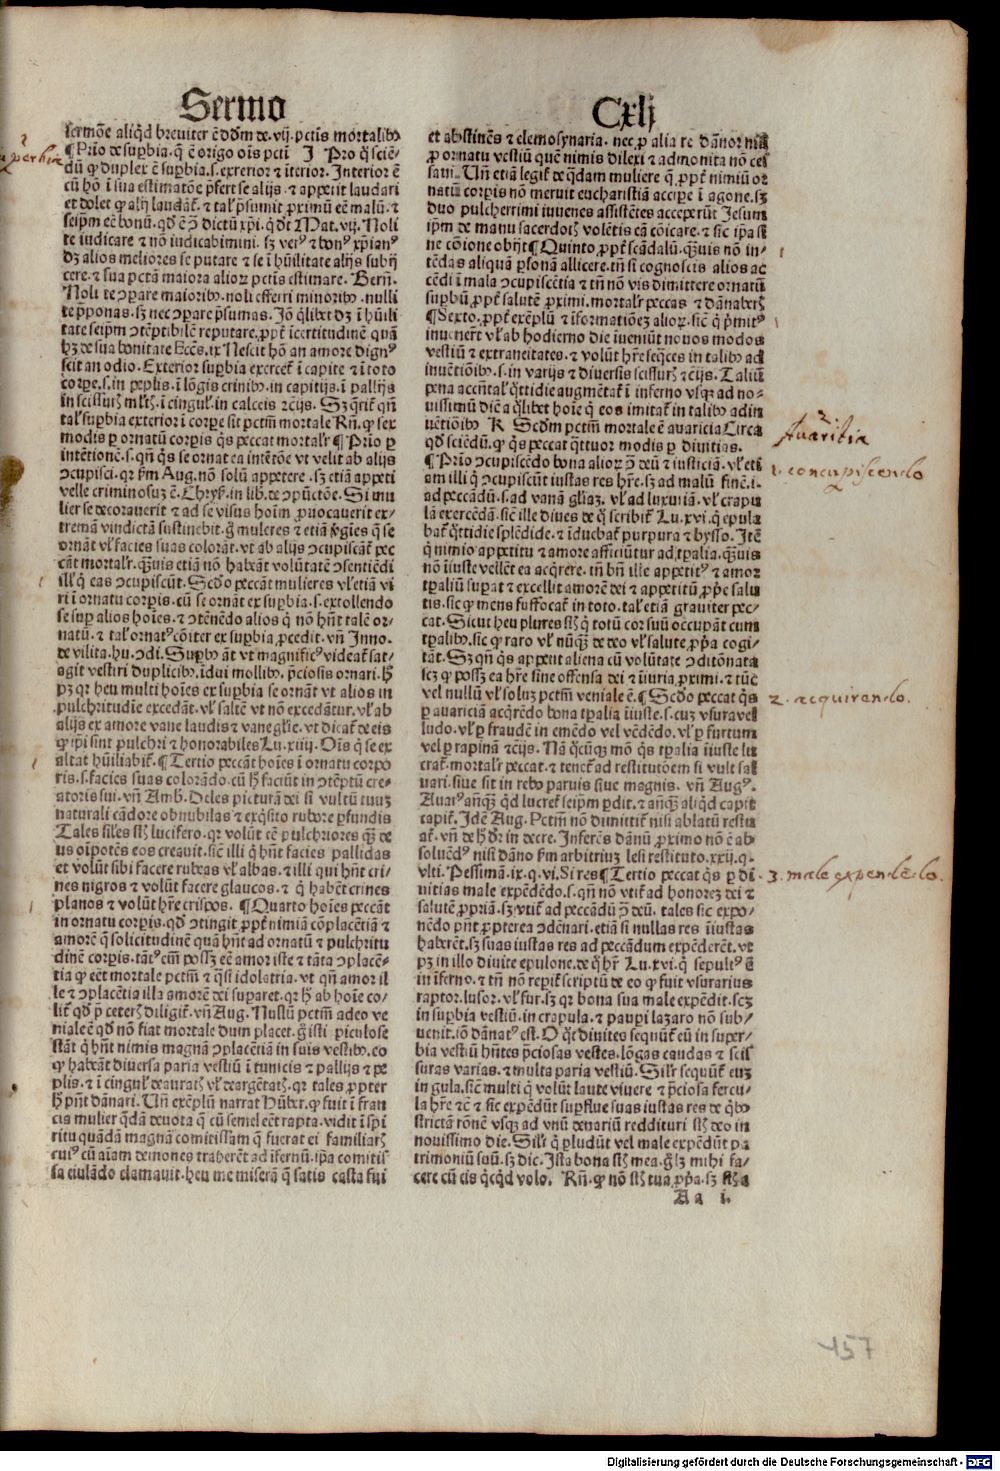 Sermo
Cxlj
sermōe aliq̄d breuiter ē dōm de .vij. pctīs mortalibꝰ
¶ Prio de suꝑbia. q̄ ē origo oīs pcti J Pro q̄ sciē⸗
dū ꝙ duplex ē suꝑbia. s. exterior ⁊ īterior. Interior ē
cū hō ī sua estimatōe p̄fert se alijs. ⁊ appetit laudari
et dolet ꝙ alij laudāt̄. ⁊ tal̓ p̄sumit ꝓximū eē malū. ⁊
seip̄m eē bonū. qd̓ ē ↄ̄ dictū xp̄i. q̄ dt̄ Mat. vij. Noli
te iudicare ⁊ nō iudicabimini. sꝫ verꝰ ⁊ bonꝰ xp̄ianꝰ
dꝫ alios meliores se putare ⁊ se ī hūilitate alijs subij
cere. ⁊ sua pctā maiora alioꝝ pctīs estimare. Bern̄.
Noli te ↄ̨parare maioribꝰ. noli efferri minoribꝰ. nulli
te p̄ponas. sꝫ nec ↄ̨pare p̄sumas. Jō q̄libet dꝫ ī hūili
tate seip̄m ↄ̨tēptibilē reputare. ꝓpt̄ īcertitudinē quā
hꝫ de sua bonitate Eccs̄. ix Nescit hō an amore dignꝰ
scit an odio. Exterior suꝑbia exercet̄ ī capite ⁊ ī toto
corꝑe. s. in peplis. ī lōgis crinibꝰ. in capitijs. ī pallijs
in scissurꝭ ml̓tꝭ. ī cingul̓. in calceis ⁊c̄ijs. Sꝫ q̄rit̄ qn̄
tal̓ suꝑbia exterior ī corꝑe sit pctm̄ mortale Rn̄. ꝙ sex
modis ꝑ ornatū corꝑis q̄s peccat mortal̓r ¶ Prīo ꝑ
intētionē. s. qn̄ q̄s se ornat ea intētōe vt velit ab alijs
ↄ̨cupisci. qꝛ ẜm Aug. nō solū appetere. sꝫ etiā appeti
velle criminosuꝫ ē. Chryß. in lib. de ↄ̨pūctōe. Si mu
lier se decorauerit ⁊ ad se visus hoīm ꝓuocauerit ex⸗
tremā vindictā sustinebit. ḡ muleres ⁊ etiā ꝟgīes q̄ se
ornāt vl̓ facies suas colorāt. vt ab alijs ↄ̨cupiscāt̄ pec
cāt mortal̓r. Quīs etiā nō habeāt volūtatē ↄ̨sentiēdi
ill̓ q̄ eas ↄ̨cupiscūt. Scd̓o peccāt mulieres vl̓ etiā vi
ri ī ornatu corꝑis. cū se ornāt ex suꝑbia. s. extollendo
se suꝑ alios hoīes. ⁊ ↄ̨tēnēdo alios q̄ nō hn̄t talē or⸗
natū. ⁊ tal̓ ornatꝰ cōiter ex suꝑbia ꝓcedit. vn̄ Inno.
de vilita. hu. ↄ̨di. Suꝑbꝰ āt vt magnificꝰ videat̄ sat⸗
agit vestiri duplicibꝰ. īdui mollibꝰ. p̄ciosis ornari. hꝭ
pꝫ qꝛ heu multi hoīes ex suꝑbia se ornāt vt alios in
pulchritudīe excedāt. vl̓ saltē vt nō excedātur. vl̓ ab
alijs ex amore vane laudis ⁊ vane gl̓ie. vt dicat̄ de eis
ꝙ ip̄i sint pulchri ⁊ honorabiles Lu. xiiij. Oīs q̄ se ex
altat hūiliabit̄. ¶ Tertio peccāt hoīes ī ornatu corpo
ris. s. facies suas colorādo. cū hꝭ faciūt in ↄ̨tēptū cre⸗
atoris sui. vn̄ Amb. Deles picturā dei si vultū tuuꝫ
naturali cādore obnubilas ⁊ exq̄sito rubore ꝑfundis
Tales siles sꝉ lucifero. qꝛ volūt eē pulchriores q̄ꝫ de
us oīpotēs eos creauit. sic̄ illi q̄ hn̄t facies pallidas
et volūt sibi facere rubeas vl̓ albas. ⁊ illi qui hn̄t cri⸗
nes nigros ⁊ volūt facere glaucos. ⁊ q̄ habēt crines
planos ⁊ volūt hr̄e crispos. ¶ Quarto hoīes peccāt
in ornatu corꝑis. qd̓ ↄ̨tingit ꝓpt̄ nimiā cōplacētiā ⁊
amorē q̄ solicitudinē quā hn̄t ad ornatū ⁊ pulchritu
dinē corꝑis. tātꝰ em̄ possꝫ eē amor iste ⁊ tāta ↄ̨placē⸗
tia ꝙ eēt mortale pctm̄ ⁊ q̄si idolatria. vt qn̄ amor il
le ⁊ ↄ̨placētia illa amorē dei suꝑaret. qꝛ hꝭ ab hoīe co⸗
lit̄ qd̓ p̄ceterꝭ diligit̄. vn̄ Aug. Nullū pctm̄ adeo ve
niale ē qd̓ nō fiat mortale dum placet. ḡ isti ꝑiculose
stāt q̄ hn̄t nimis magnā ↄ̨placētiā in suis vestibꝰ. eo
ꝙ habeāt diuersa paria vestiū ī tunicis ⁊ pallijs ⁊ pe
plis. ⁊ ī cingul̓ deauratꝭ vl̓ deargētatꝭ. qꝛ tales ꝓpter
hꝭ pn̄t dānari. Un̄ exēplū narrat Hūber. ꝙ fuit ī fran
cia mulier q̄dā deuota q̄ cū semel eēt rapta. vidit ī spi
ritu quādā magnā comitissam q̄ fuerat ei familiarꝭ
cuiꝰ cū aīam demones traherēt ad īfernū. ip̄a comitis⸗
sa eiulādo clamauit. heu me miserā q̄ satis casta fui
et abstinēs ⁊ elemosynaria. nec ꝓ alia re dānor nisi
ꝓ ornatu vestiū quē nimis dilexi ⁊ admonita nō ces
saui. Un̄ etiā legit̄ de q̄dam muliere q̄ ꝓpt̄ nimiū or
natū corꝑis nō meruit eucharistiā accipe ī agone. sꝫ
duo pulcherrimi iuuenes assistētes acceperūt Jesum
ip̄m de manu sacerdotꝭ volētis eā cōicare. ⁊ sic ip̄a si
ne cōione obijt ¶ Quinto ꝓpt̄ scādalū. q̄ꝫuis nō in⸗
tēdas aliquā ꝑsonā allicere. tn̄ si cognoscis alios ac
cēdi ī mala ↄ̨cupiscētia ⁊ tn̄ nō vis dimittere ornatū
suꝑbū ꝓpt̄ salutē ꝓximi. mortal̓r peccas ⁊ dānaberꝭ
¶ Sexto. ꝓpt̄ exēplū ⁊ īformationēꝫ alioꝝ. sic̄ q̄ p̄mitꝰ
inuenerūt vl̓ ab hodierno die īueniūt nouos modos
vestiū ⁊ extraneitates. ⁊ volūt hr̄e seq̄ces in talibꝰ ad
inuētiōibꝰ. s. in varijs ⁊ diuersis scissurꝭ ⁊c̄ijs. Taliū
pena accn̄tal̓ q̄ttidie augmētat̄ ī inferno vsqꝫ ad no⸗
uissimū diē a q̄libet hoīe q̄ eos imitat̄ in talibꝰ adin
uētiōibꝰ K Scd̓m pctm̄ mortale ē auaricia Circa
qd̓ sciēdū. ꝙ q̄s peccat q̄ttuor modis ꝑ diuitias.
¶ Prīo ↄ̨cupiscēdo bona alioꝝ ↄ̄ deū ⁊ iusticiā. vl̓ eti
am illi q̄ ↄ̨cupiscūt iustas res hr̄e. sꝫ ad malū finē. i.
ad peccādū. s. ad vanā gl̓iaꝫ. vl̓ ad luxuriā. vl̓ crapu
lā exercēdā. sic̄ ille diues de q̄ scribit̄ Lu. xvi. q̄ epula
bat̄ q̄ttidie splēdide. ⁊ īduebat̄ purpura ⁊ bysso. Itē
q̄ nimio appetitu ⁊ amore afficiūtur ad tꝑalia. q̄ꝫuis
nō īiuste vellēt ea acq̄rere. tn̄ bn̄ ille appetitꝰ ⁊ amor
tꝑaliū suꝑat ⁊ excellit amorē dei ⁊ appetitū ꝓp̄e salu
tis. sic ꝙ mens suffocat̄ in toto. tal̓ etiā grauiter pec⸗
cat. Sicut heu plures sꝉ q̄ totū cor suū occupāt cum
tꝑalibꝰ. sic ꝙ raro vl̓ nūqꝫ de deo vl̓ salute ꝓp̄a cogi⸗
tāt. Sꝫ qn̄ q̄s appetit aliena cū volūtate ↄ̨ditōnata
scꝫ ꝙ possꝫ ea hr̄e sine offensa dei ⁊ īiuria ꝓximi. ⁊ tūc
vel nullū vl̓ soluꝫ pctm̄ veniale ē. ¶ Scd̓o peccat q̄s
ꝑ auariciā acq̄rēdo bona tꝑalia īiuste. s. cuꝫ vsura vel
ludo. vl̓ ꝑ fraudē in emēdo vel vēdēdo. vl̓ ꝑ furtum
vel ꝑ rapinā ⁊c̄ijs. Nā q̄cūqꝫ mō q̄s tꝑalia īiuste lu
crat̄. mortal̓r peccat. ⁊ tenet̄ ad restitutōem si vult sal
uari. siue sit in rebꝰ paruis siue magnis. vn̄ Augꝰ.
Auarꝰ anq̄ꝫ qd̓ lucret̄ seip̄m ꝑdit. ⁊ anq̄ꝫ aliqd̓ capit
capit̄. Idē Aug. Pctm̄ nō dimittit̄ nisi ablatū restitu
at̄. vn̄ de hꝭ dr̄ in decre. Inferēs dānū ꝓximo nō ē ab
soluēdꝰ nisi dāno ẜm arbitriuꝫ lesi restituto. xxij. q.
vlti. Pessimā. ix. q. vi. Si res ¶ Tertio peccat q̄s ꝑ di⸗
uitias male expēdēdo. s. qn̄ nō vtit̄ ad honoreꝫ dei ⁊
salutē ꝓpriā. sꝫ vtit̄ ad peccādū ↄ̄ deū. tales sic expo⸗
nēdo pn̄t ꝓpterea ↄ̨dēnari. etiā si nullas res īiustas
haberēt. sꝫ suas iustas res ad peccandum expēderēt. vt
pꝫ in illo diuite epulone. de q̄ hr̄ Lu. xvi. q̄ sepultꝰ ē
in īferno. ⁊ tn̄ nō reꝑit̄ scriptū de eo ꝙ fuit vsurarius
raptor. lusor. vl̓ fur. sꝫ qꝛ bona sua male expēdit. scꝫ
in suꝑbia vestiū. in crapula. ⁊ pauꝑi lazaro nō sub⸗
uenit. iō dānatꝰ est. O q̄t diuites sequūt̄ eū in super⸗
bia vestiū hn̄tes p̄ciosas vestes. lōgas caudas ⁊ scis
suras varias. ⁊ multa paria vestiū. Sil̓r sequūt̄ euꝫ
in gula. sic̄ multi q̄ volūt laute viuere ⁊ p̄ciosa fercu⸗
la hr̄e ⁊c̄ ⁊ sic expēdūt suꝑflue suas iustas res de q̄bꝰ
strictā rōnē vsqꝫ ad vnū denariū reddituri sꝉ deo in
nouissimo die. Sil̓r q̄ ꝑludūt vel male expēdūt pa
trimoniū suū. sꝫ dic. Ista bona sꝉ mea. ḡ lꝫ mihi fa⸗
cere cū eis q̄cq̄d volo. Rn̄. ꝙ nō sꝉ tua ꝓp̄a. sꝫ sꝉ a
Aa i.
Avaritia
1. concupiscendo
2. acquirendo.
3. male expendēdo.
157
Digitalisierung gefördert durch die Deutsche Forschungsgemeinschaft - DFG